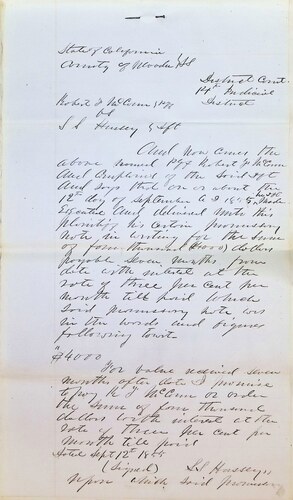 State of California
County of
District Court
District
Robert F McCune Plff
vs
S S Hussey Deft
And now comes the
above named Plff Robert F McCune
And complained of the said Deft
And says that on or about the
12th day of September A D
Executed And delivered unto this
Plaintiff his certain promissory
note in writing for the sum
of four thousand (4000) dollars
payable seven months from
date with interest at the
rate of three per cent per
month till paid which
said promissory note was
in the words and figures
following to wit
"$4000
For value received seven
months after date I promise
to pay R F McCune or order
the sum of four thousand
dollars with interest at the
rate of three per cent per
Month till paid
Dated Sept 12th
(Signed) S S Hussey"
upon which said promissory